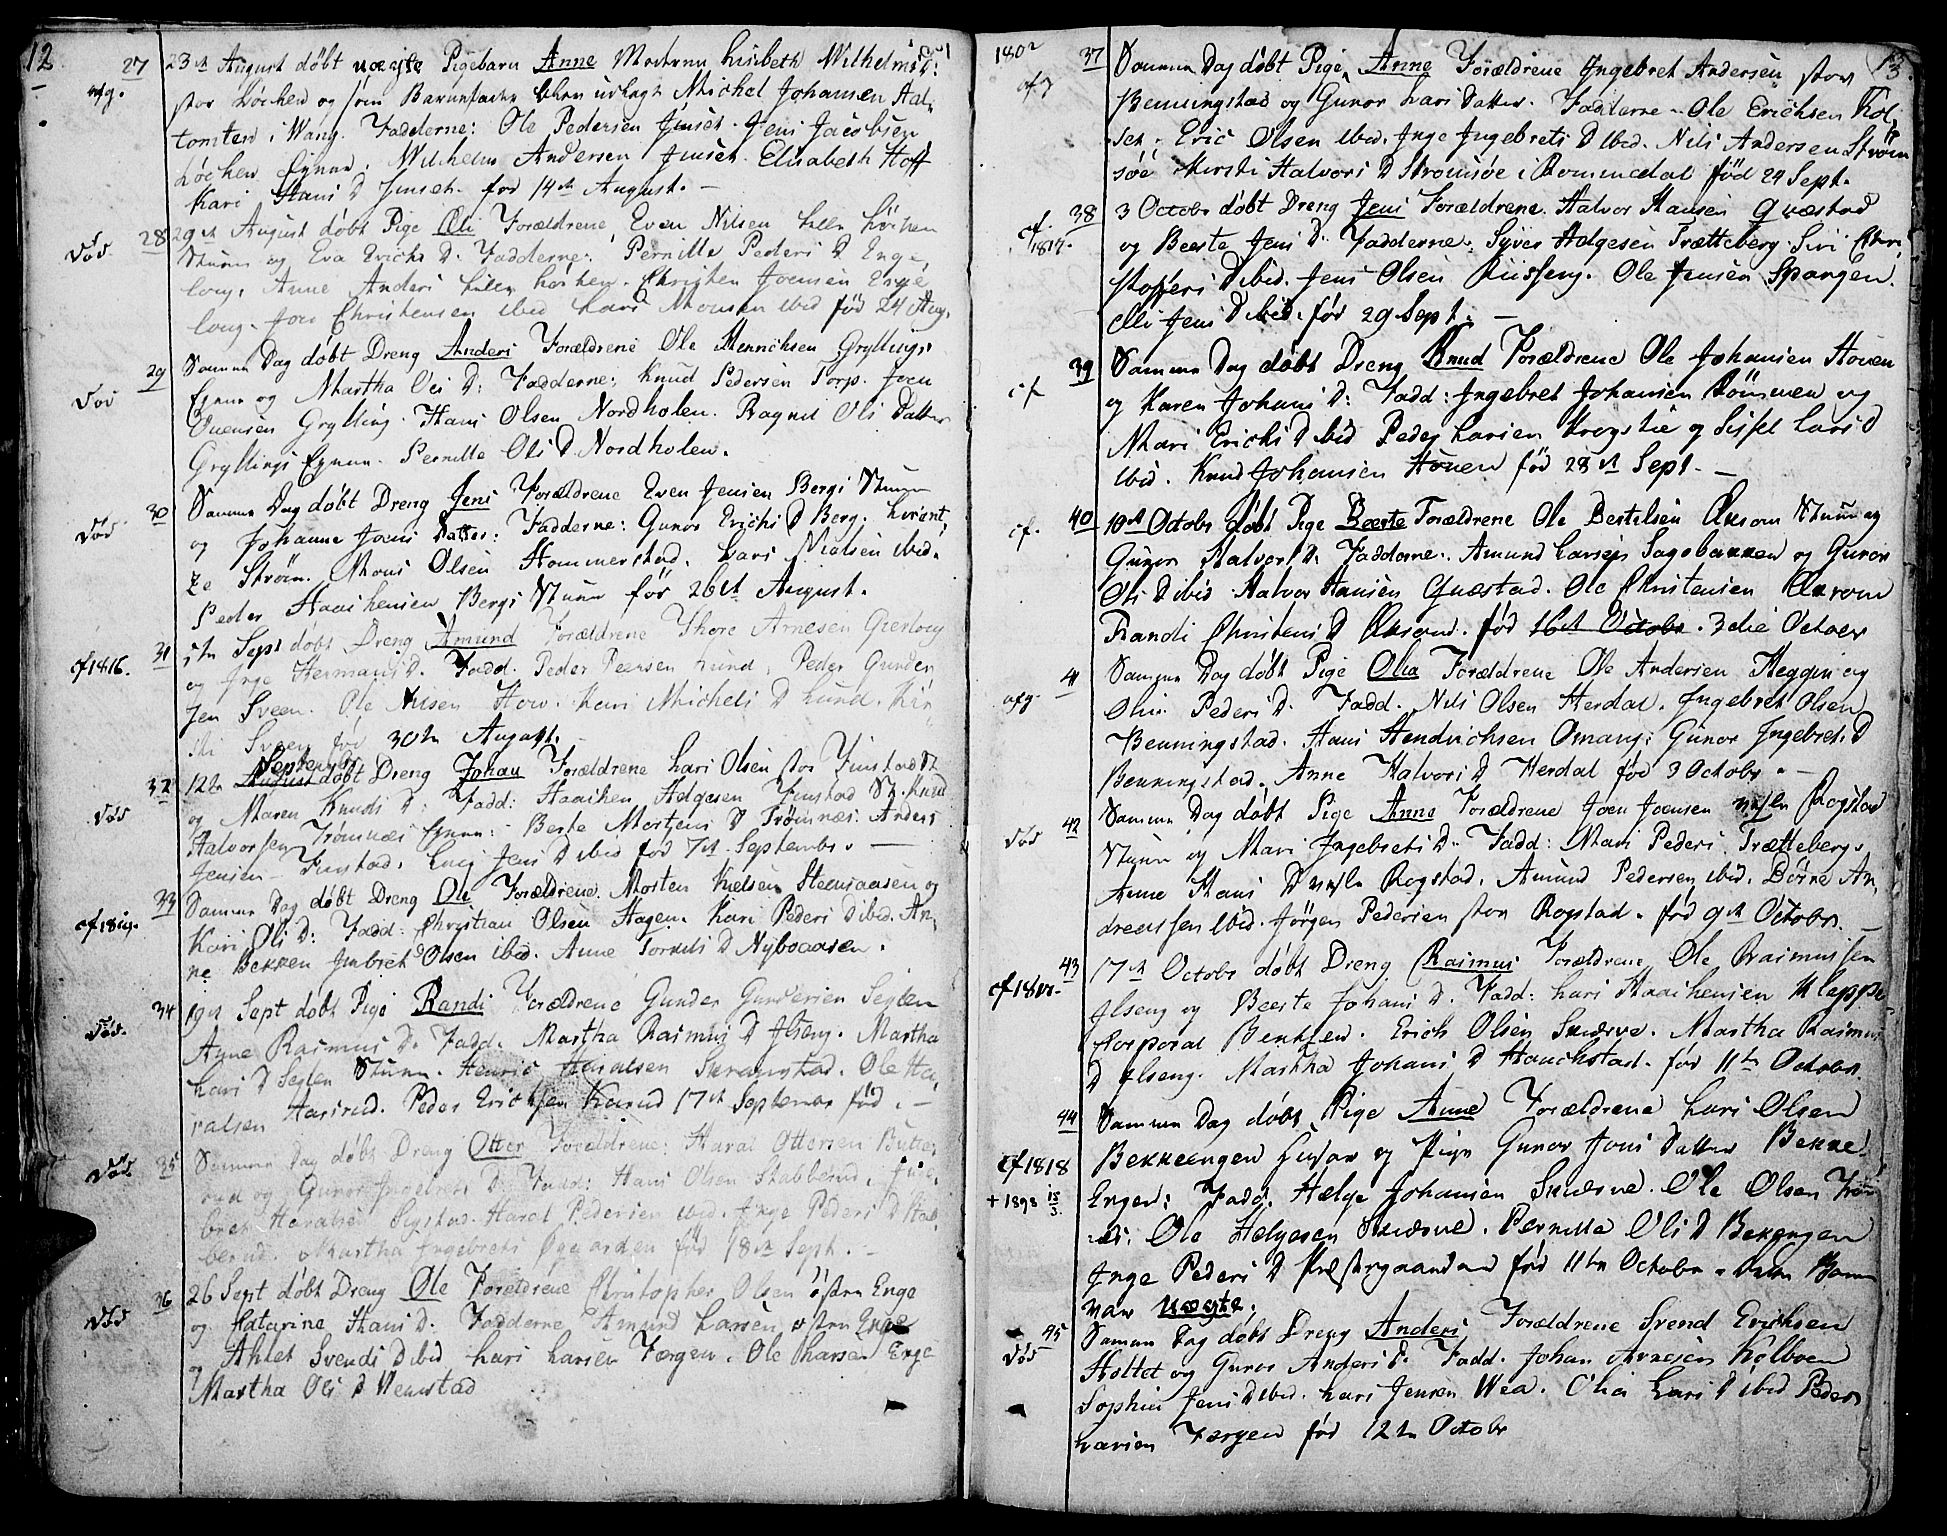 12
27 23de August døbt uægte Pigebarn Anne Moderen Lisbeth Wilhelms D:
afg. stor Løchen og som Barnefader blev udlagt Michel Johansen Aal,
tomten i Wang. Fadderne: Ole Pedersen Jmset. Jens Jacobsen
Løchen Eynnr. Wilhelm Andersen Jmset. Elisabeth Hoff
Kari Hans D Jmset. fød 14de August. —
28 29de August døbt Pige Oli Forældrene, Even Nilsen lille Løchen
død Stuen og Eva Erichs D. Fadderne: Pernille Peders D Enge,
loug, Anne Anders lille Løchen. Christen Joensen Enge
loug. Joen Christensen ibid Lars Monsen ibid fød 24 Aug.
29 Samme Dag døbt Dreng Anders Forældrene Ole Henrichsen Gryllings
død Eynnr og Martha Ols D: Fadderne: Knud Pedersen Torp. Joen
Evensen Grylling. Hans Olsen Nordholen. Ragnil Ols Datter
Gryllings Eynnr. Pernille Ols D Nordholen.
30 Samme Dag døbt Dreng Jens Forældrene Even Jensen Bergs Stuen
død og Johanne Joens Datter: Fadderne: Gunor Erichs D Berg. Lorent,
ze Strøm. Mons Olsen Hommerstad. Lars Nielsen ibid.
Peder Haachensen Bergs Stuen fød 26de August.
31 5te Sept døbt Dreng Amund Forældrene Thore Arnesen Grestoeg
cf 1816. og Inge Hermans D. Fadd. Peder Pedersen Lund, Peder Gunder,
sen Sveen. Ole Nilsen How. Kari Michels D Lund. Kir,
sti Sveen fød 30te August.
September
32 12te August døbt Dreng Johan Forældrene Lars Olsen stor Jmstad St
død og Maren Knuds D: Fadd: Haachen Helgesen Jmstad St. Knud
Halvorsen Trømnæs Eynnr: Berte Mortens D Trømnæs. Anders
Jensen Jmstad. Luci Jens D ibid fød 7de Septembr. —
33 Samme Dag døbt Dreng Ole Forældrene. Morten Nielsen Steensaasen og
cf 1819. Kari Ols D: Fadd: Christian Olsen Hagen. Kari Peders D ibid. An,
ne Bekken Jmbret Olsen ibid. Anne Torkils D Nyboaasen.
34 19de Sept døbt Pige Randi Forældrene Gunder Gundersen Seglen
død. Anne Rasmus D. Fadd. Martha Rasmus D Jlseng. Martha
Lars D Seglen Stuen. Henric Haralsen Skramstad. Ole Ha,
ralsen Aasrud. Peder Erichsen Karud 17de September fød. —
død 35 Samme Dag døbt Dreng Otter Forældrene: Haral Ottersen Butte,
rud og Gunor Ingebrets D. Fadd: Hans Olsen Stabberud, Inge,
bret Haralsen Sigstad. Haral Pedersen ibid. Inge Peders D Stab,
berud. Martha Ingebrets Øegarden fød 18de Sept. —
36 26 Sept døbt Dreng Ole Forældrene Christopher Olsen østre Enge
død og Catarine Hans D. Fadderne Amund Larsen østre Enge
og Ahlet Svends D ibid Lars Larsen Færgen. Ole Larsen Enge
Martha Ols D Vemstad
1802
13
37 Samme Dag døbt Pige Anne Forældrene Ingebret Andersen stor
af Benningstad og Gunor Lars Datter. Fadderne. Ole Erichsen Kol,
set. Eric Olsen ibid. Inge Ingebrets D ibid. Nils Andersen Strøm
søe Kirsti Halvors D Strømsøe i Rommedal fød 24 Sept.
38 3 Octobr døbt Dreng Jens Forældrene. Halvor Hansen Qvæstad
cf. 1817. og Beerte Jens D. Fadderne: Syver Helgesen Trætteberg. Siri Chri,
stoffers D ibid. Jens Olsen Riisseng. Ole Jensen Spangen.
Elli Jens D ibid. fød 29 Sept. —
39 Samme Dag døbt Dreng Knud Forældrene Ole Johansen Houen
cf og Karen Johans D: Fadd: Ingebret Johansen Rømmen og
Mari Erichs D ibid Peder Larsen Krogstie og Sissel Lars D
ibid. Knud Johansen Houen fød 28de Sept. —
cf. 40 10de Octobr døbt Pige Beerte Forældrene Ole Bertelsen Aksom Stuen og
Gunor Halvors D. Fadderne. Amund Larsen Sagebakken og Gunor
Ols D ibid Halvor Hansen Qvæstad. Ole Christensen Aksom
Frandi Christens D Aksom. fød 16de Octobr. 3die Octobr
41 Samme Dag døbt Pige Olia Forældrene Ole Andersen Heggen og
afg. Olia Peders D. Fadd. Nils Olsen Herdal. Ingebret Olsen
Benningstad. Hans Hendrichsen Omang. Gunor Ingebrets D
Benningstad. Anne Halvors D Herdal fød 3 Octobr. —
42 Samme Dag døbt Pige Anne Forældrene Joen Joensen Rogstad
død Stuen og Mari Ingebrets D. Fadd: Mari Peders Trætteberg.
Anne Hans D Rogstad. Amund Pedersen ibid. Børre An,
dreassen ibid. Jørgen Pedersen stor Rogstad. fød 9de Octobr. —
43 17de Octobr døbt Dreng Rasmus Forældrene Ole Rasmussen
Jlseng og Beerte Johans D. Fadd: Lars Haachensen Kleppe
Corporal Benksen. Erich Olsen Snærsve. Martha Rasmus
D Jlseng. Martha Johans D Hauchstad. fød 11te Octobr.
44 Samme Dag døbt Pige Anne Forældrene Lars Olsen
cf 1818 Bekkeengen Husar og Pige Gunor Jons Datter Bekke,
+ 1898 15/3 Engen: Fadd: Helge Johansen Snærsve. Ole Olsen Trøm
næs. Ole Helgesen Snærsve. Pernille Ols D Bekengen
Inge Peders D Præstegaarden fød 11te Octobr. dette Barn
var Uægte.
45 Samme Dag døbt Dreng Anders Forældrene Svend Erichsen
død Holtet og Gunor Anders D. Fadd. Johan Arnesen Kolboen
Sophie Jens D ibid. Lars Jensen Wea. Olia Lars D ibid Peder
Larsen Færgen fød 12te Octobr